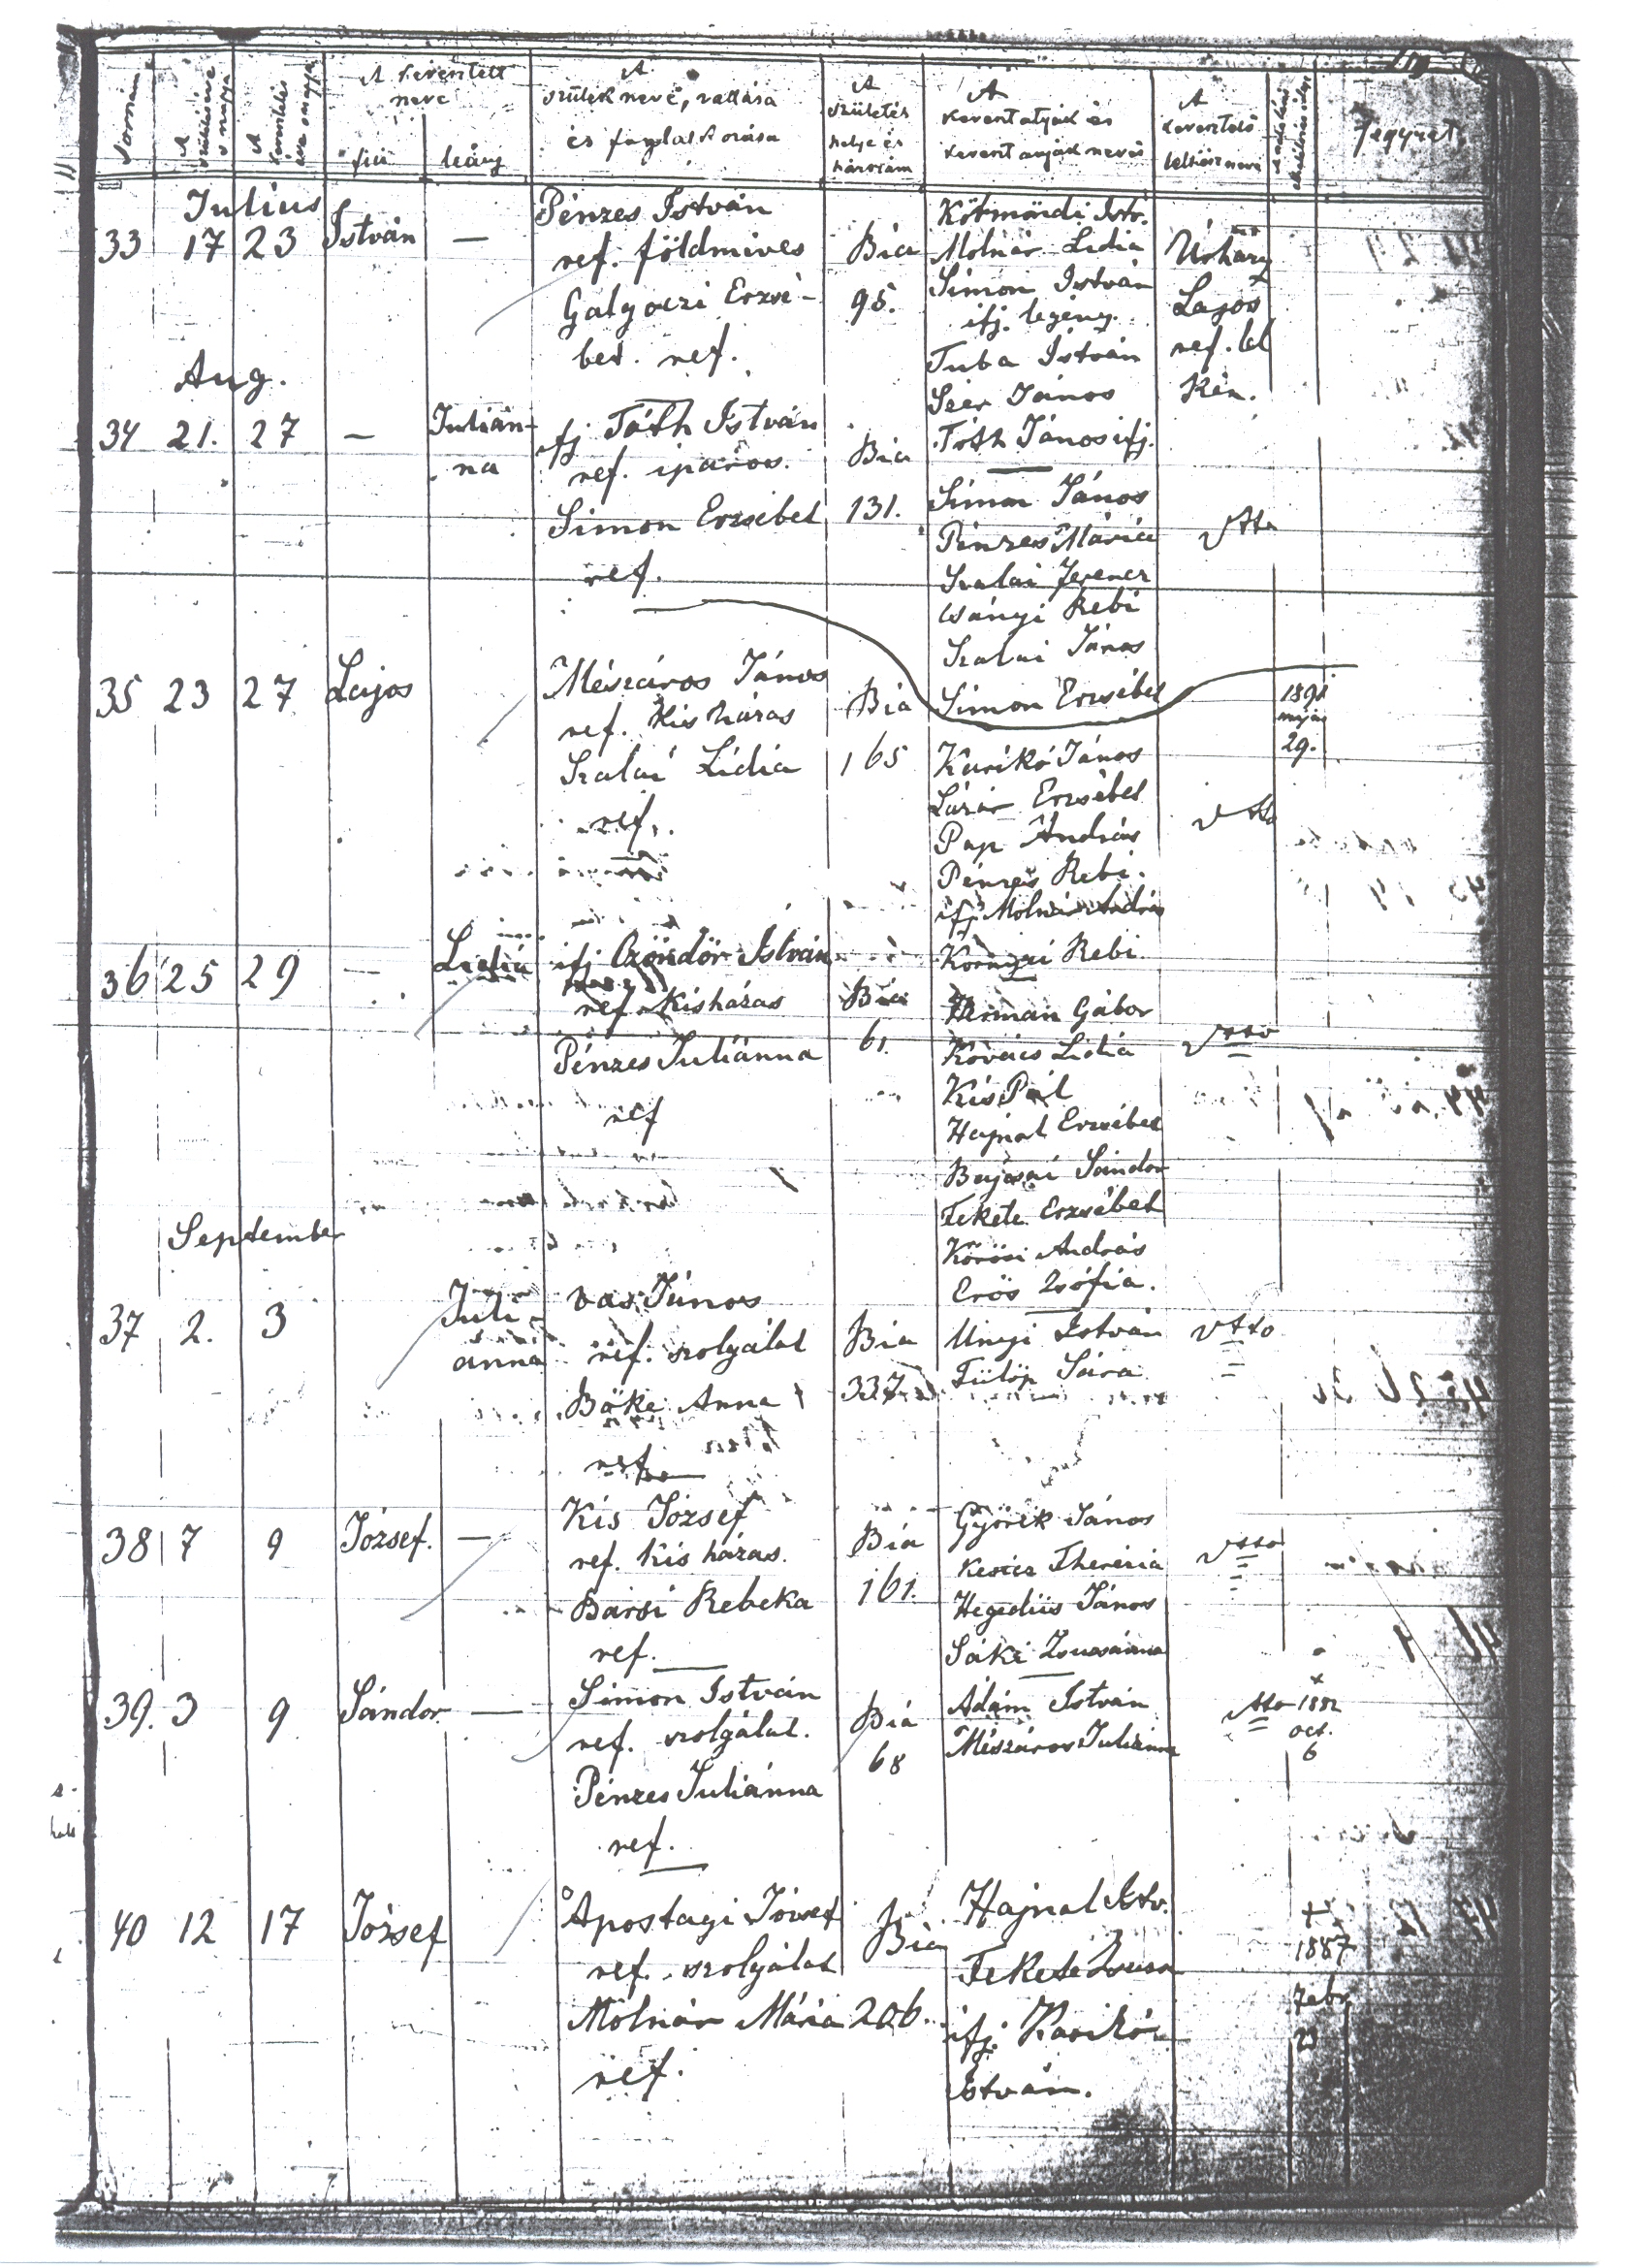 Sorszám
A születés éve s napja
A keresztelés éve s napja
A keresztelt neve
fiú
leány
A szülék neve, vallása
és foglalkozása
A születés
helye és
házszám
A
keresztatyák és
keresztanyák nevei
A
keresztelő
lelkész neve
Jegyzet.
Julius
33 17 23 István —
Pénzes István
ref. földmives
Galgoczi Erzsé-
bet. ref.
Bia
95.
Molnár Lidia
Simon István
ifj. legény.
Tuba István
János
Lajos
ref. lel
Aug.
34 21. 27 —
Julián-
na
ifj Tóth István
ref. iparos.
Simon Erzsébet
ref.
Bia
131.
Tóth János ifj.
Simon János
Pénzes Mária
Szalai Ferencz
Csányi Rebi
Szalai János
Simon Erzsébet
vtto
35 23 27 Lajos
Mészáros János
ref. kisházas
Szalai Lídia
ref.
Bia
165
Karikó János
Lázár Erzsébet
Pap András
Pénzes Rebi.
ifj Molnár András
Környei Rebi.
vtto
29.
36 25 29 — Lidia
ifj Czöndör István
ref. kisházas
Pénzes Juliánna
ref
Bia
61.
Gábor
Kovács Lidia
Kis Pál
Hajnal Erzsébet
Sándor
Fekete Erzsébet
Körösi András
Erös Zsófia.
vtto
September
37 2. 3
Juli-
anna
Vas János
ref. szolgálat
Böke Anna
ref.
Bia
337.
Unyi István
Fülöp Sára
vtto
38 7 9 József. —
Kis József
ref. kis házas.
Barsi Rebeka
ref.
Bia
161.
Györik János
Hegedüs János
Sáki Zsuzsánna
vtto
39. 3 9 Sándor. —
Simon István
ref. szolgálat.
Pénzes Juliánna
ref.
Bia
68
Ádám István
Mészáros Juliánna
vtto
oct.
6
40 12 17 József
Apostagi József
ref. szolgálat
Molnár Mária
ref.
Bia
206.
Hajnal Istv.
Fekete Zsuzsa
ifj. Karikó
István.
1887
Febr